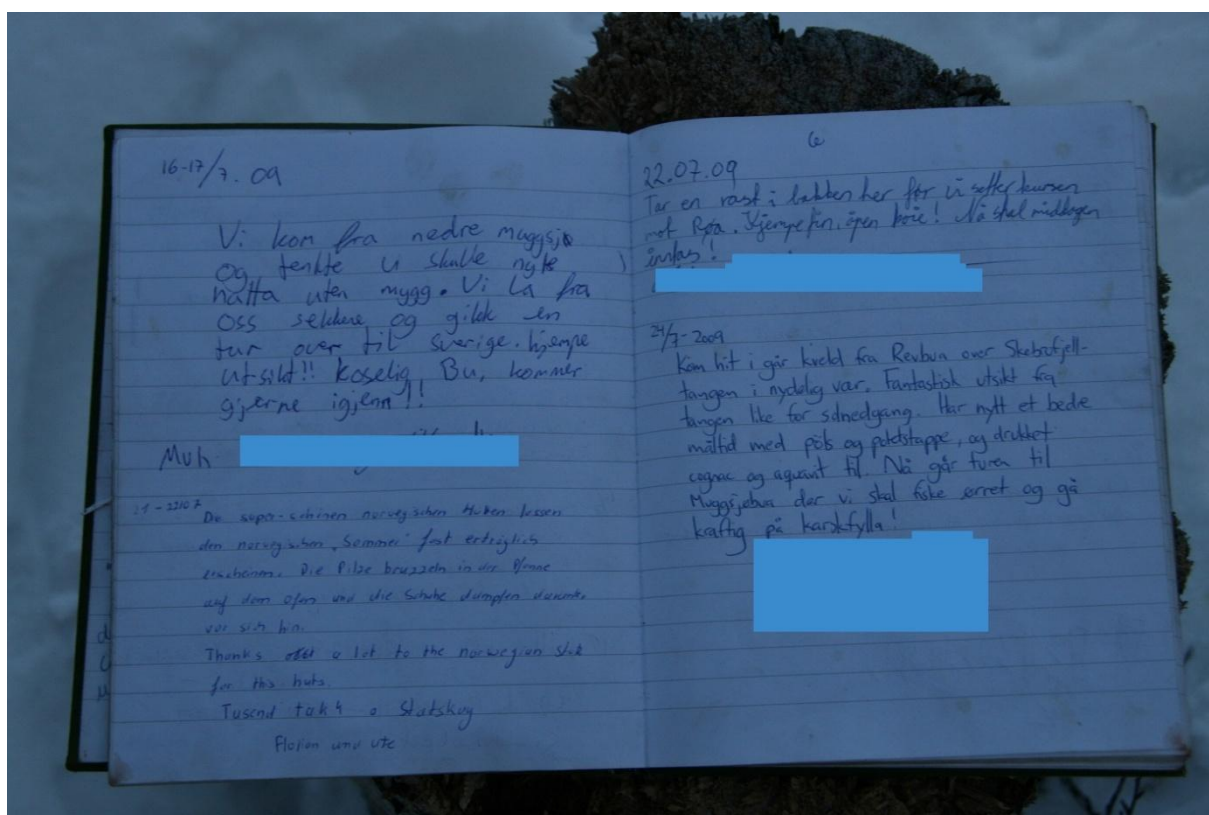 16-17/7.09
Vi kom fra nedre muggsjø
og tenkte vi skulle nyte
natta uten mygg. Vi la fra
oss sekkene og gikk en
tur over til Sverige. kjempe
utsikt!! Koselig Bu, kommer
gjerne igjenn!!
Muh
Die super-schönen norwegischen Hütten lassen
den norwegischen "Sommer" fast erträglich
erscheinen. Die Pilze bruzzeln in der Pfanne
auf dem Ofen und die Schuhe dampfen darunter
vor sich hin.
Thanks a lot to the norwegian
for this huts.
Tusend takk Statskog
Florian und Ute
6
22.07.09
Tar en rast i bakken her før vi setter kursen
mot Røa. Kjempefin, åpen koie! Nå skal middagen
inntas!
24/7-2009
Kom hit i går kveld fra Revbua over Skebrofjell-
tangen i nydelig vær. Fantastisk utsikt fra
tangen like før solnedgang. Har nytt et bedre
måltid med pøls og potetstappe, og drukket
cognac og aquavit til. Nå går turen til
Muggsjøbua der vi skal fiske ørret og gå
kraftig på karskfylla!